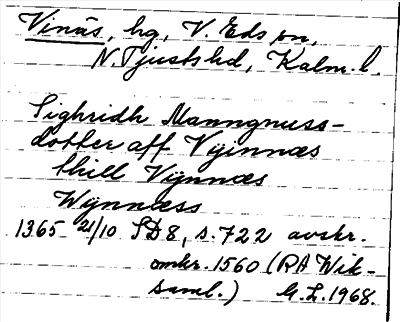 Vinäs, hg, V. Eds sn,
N. Tjusts hd, Kalm. l.
Sighridh Manngnuss-
dotter aff Vyinnæs
thill Vynnæs
Wynnæss
1365 21/10 SD 8, s. 722 avskr.
omkr. 1560 (RA Wik-
saml.) G.L. 1968.